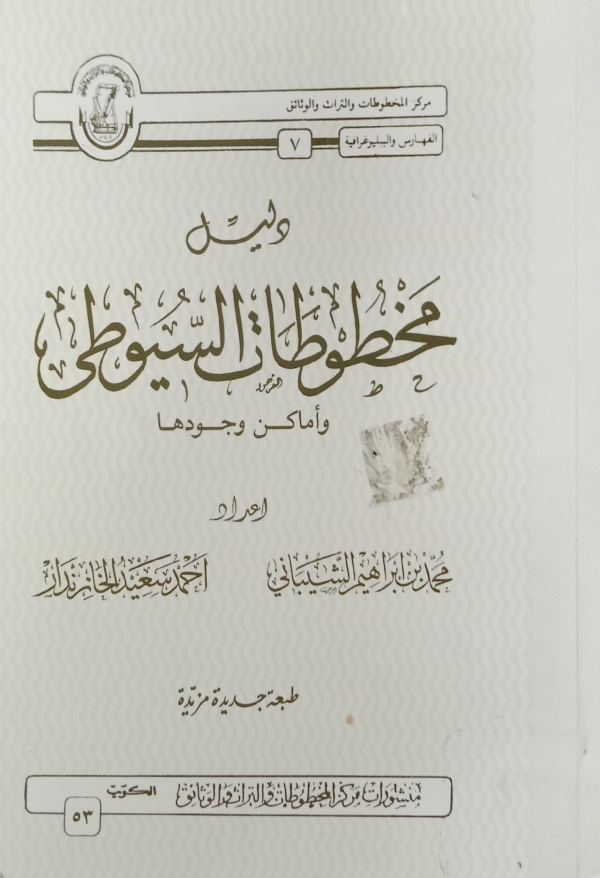 مركز المخطوطات والتراث والوثائق
الفهارس والببليوغرافية
٧
دليل
مخطوطات السيوطي
وأماكن وجودها
إعداد
محمد بن إبراهيم الشيباني
أحمد سعيد الخازندار
طبعة جديدة مزيدة
منشورات مركز المخطوطات والتراث والوثائق الكويت
٥٣